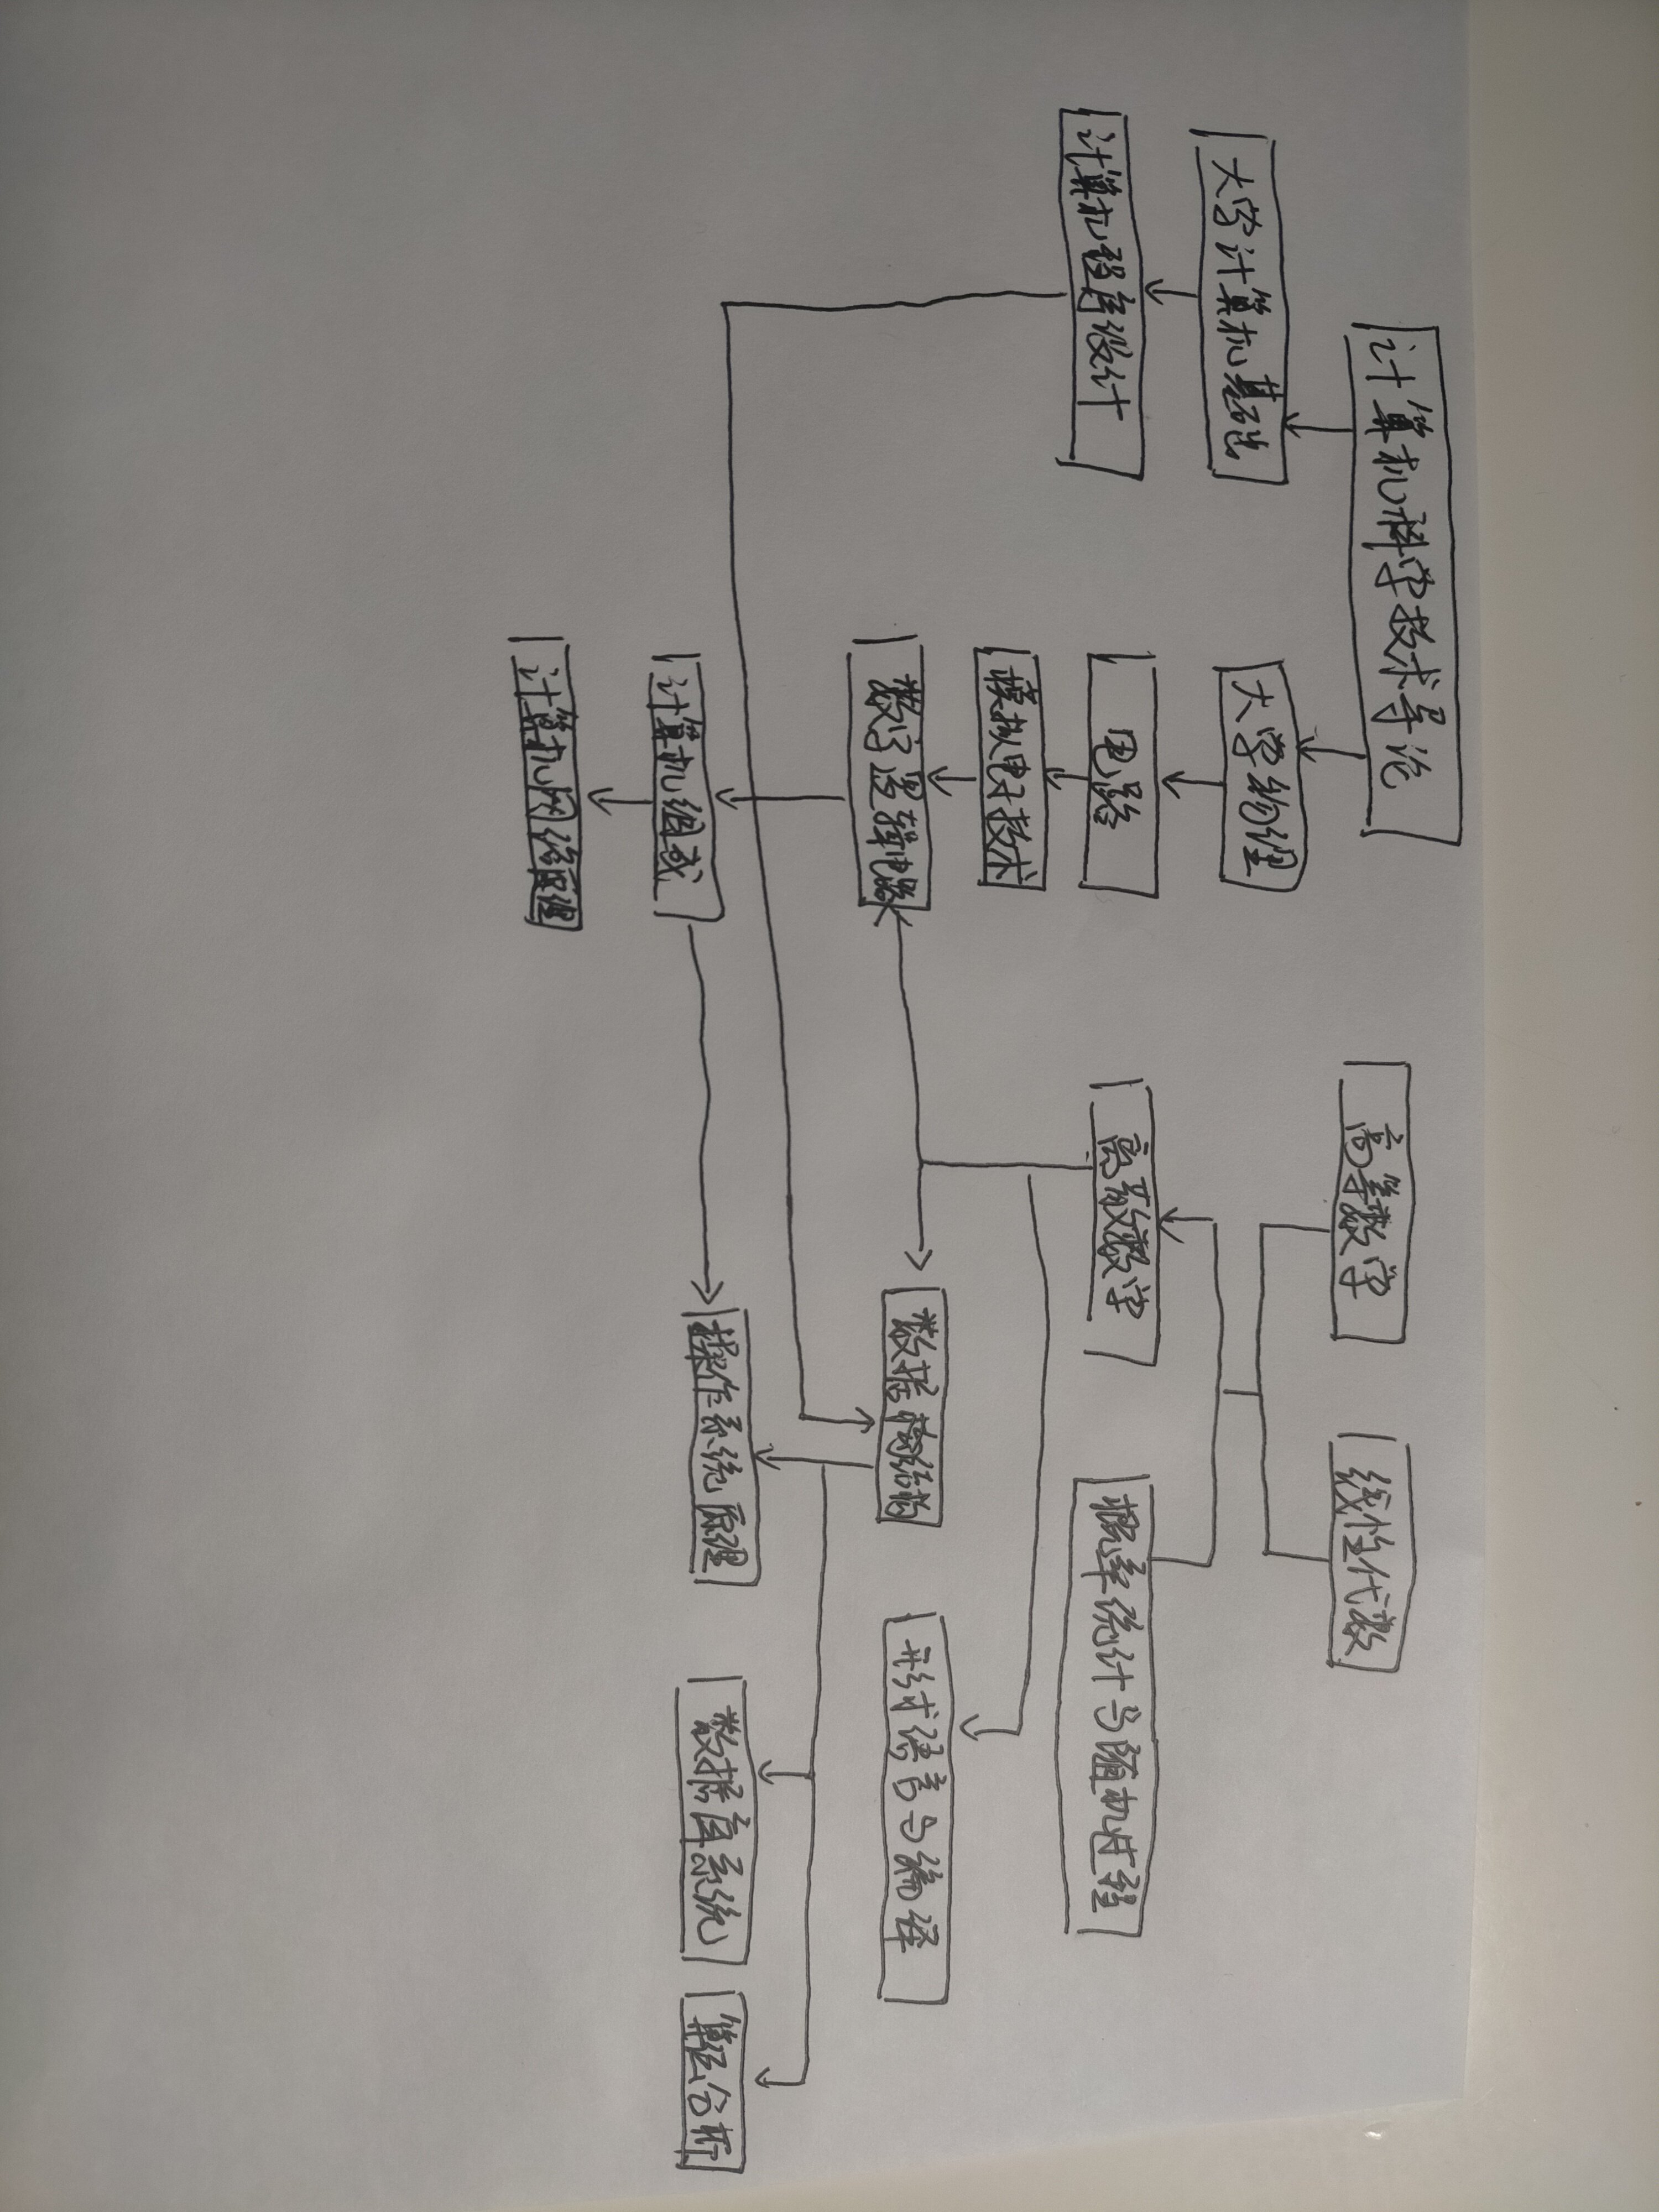 计算机科学技术导论
高等数学
线性代数
大学计算机基础
大学物理
计算机程序设计
电路
离散数学
概率统计与随机过程
模拟电子技术
数字逻辑电路
数据结构
形式语言与编译
计算机组成
操作系统原理
数据库系统
算法分析
计算机网络原理